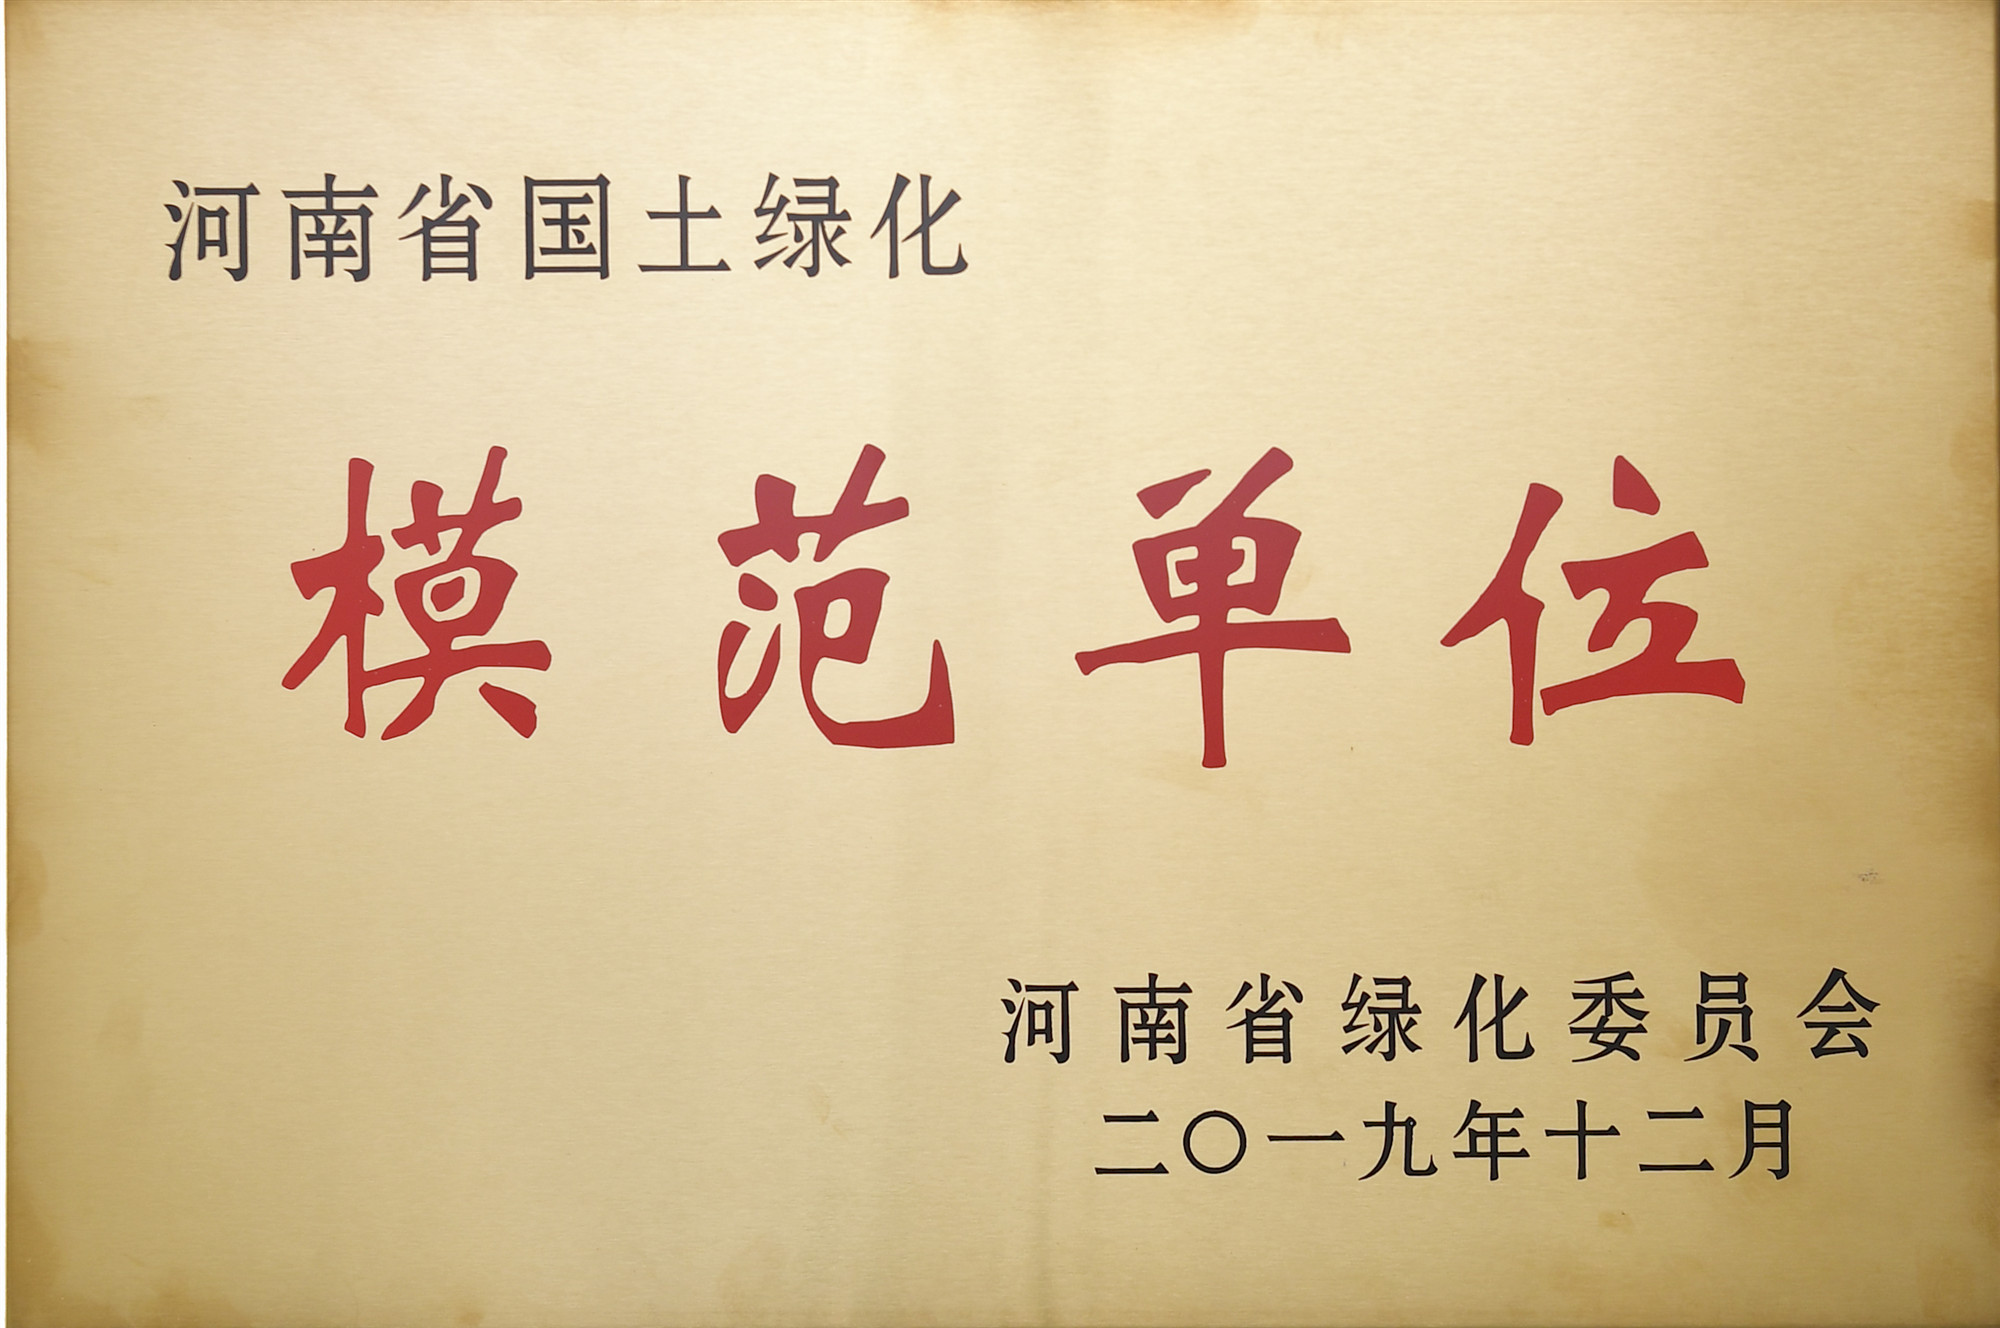 河南省国土绿化
模范单位
河南省绿化委员会
二〇一九年十二月